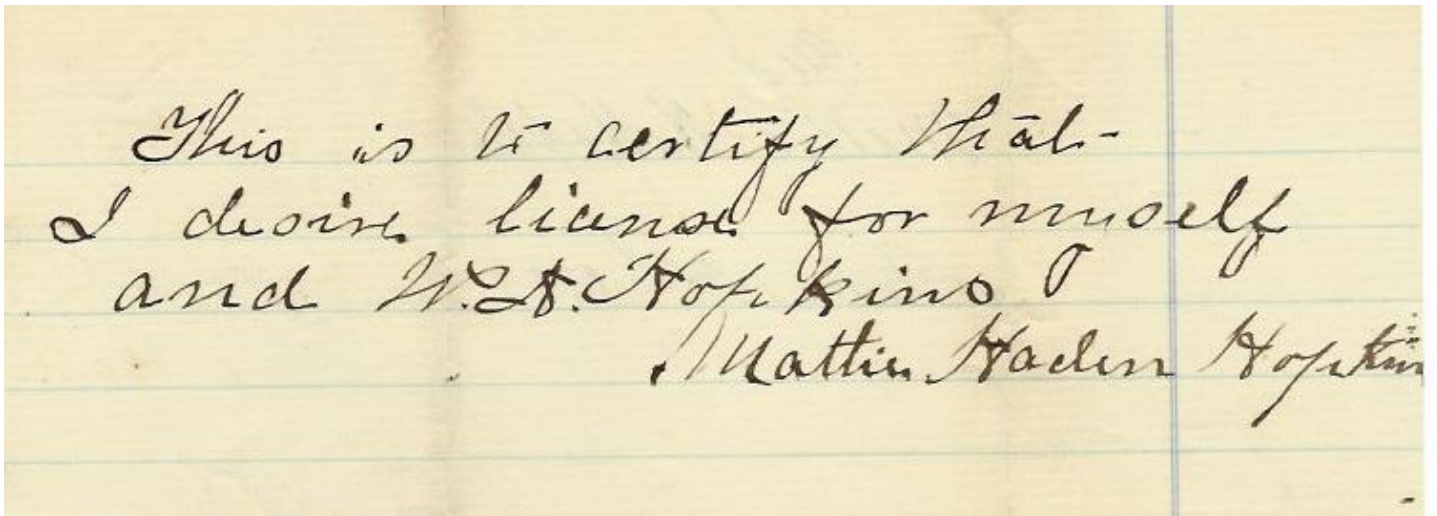 This is to certify that
I desire license for myself
and W. A. Hopkins
Mattie Haden Hopkin